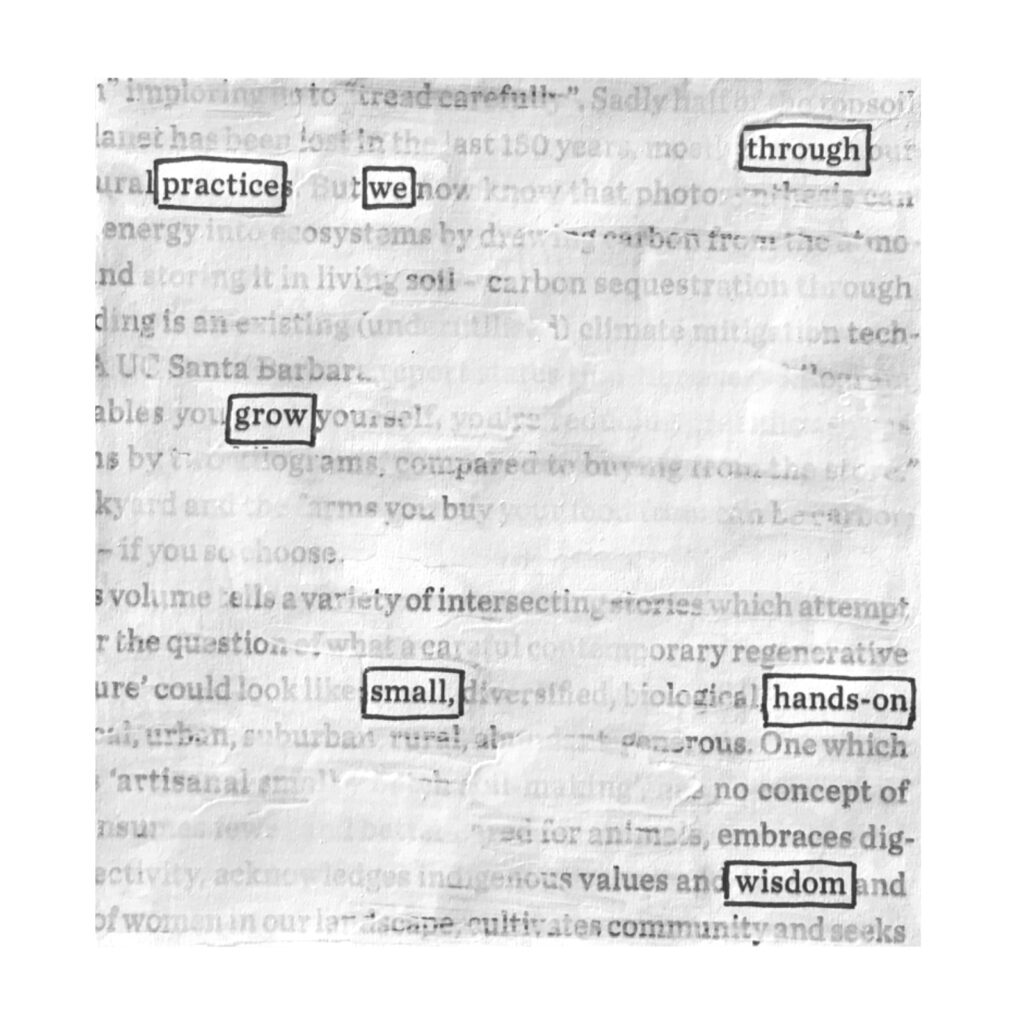 " imploring us to "tread carefully". Sadly half of the topsoil
lanet has been lost in the last 150 years, through our
ural practices. But we now know that photosynthesis can
energy into ecosystems by drawing carbon from the atmo-
nd storing it in living soil – carbon sequestration through
ding is an existing climate mitigation tech-
A UC Santa Barbara report
ables you grow yourself, you're
ns by two kilograms, compared to buying from the store."
kyard and the farms you buy your food from can be carbon
– if you so choose.
s volume tells a variety of intersecting stories which attempt
r the question of what a careful contemporary regenerative
ure' could look like: small, diversified, biological, hands-on
cal, urban, suburban, rural, abundant, generous. One which
s 'artisanal no concept of
for animals, embraces dig-
ectivity, acknowledges indigenous values and wisdom and
of women in our landscape, cultivates community and seeks